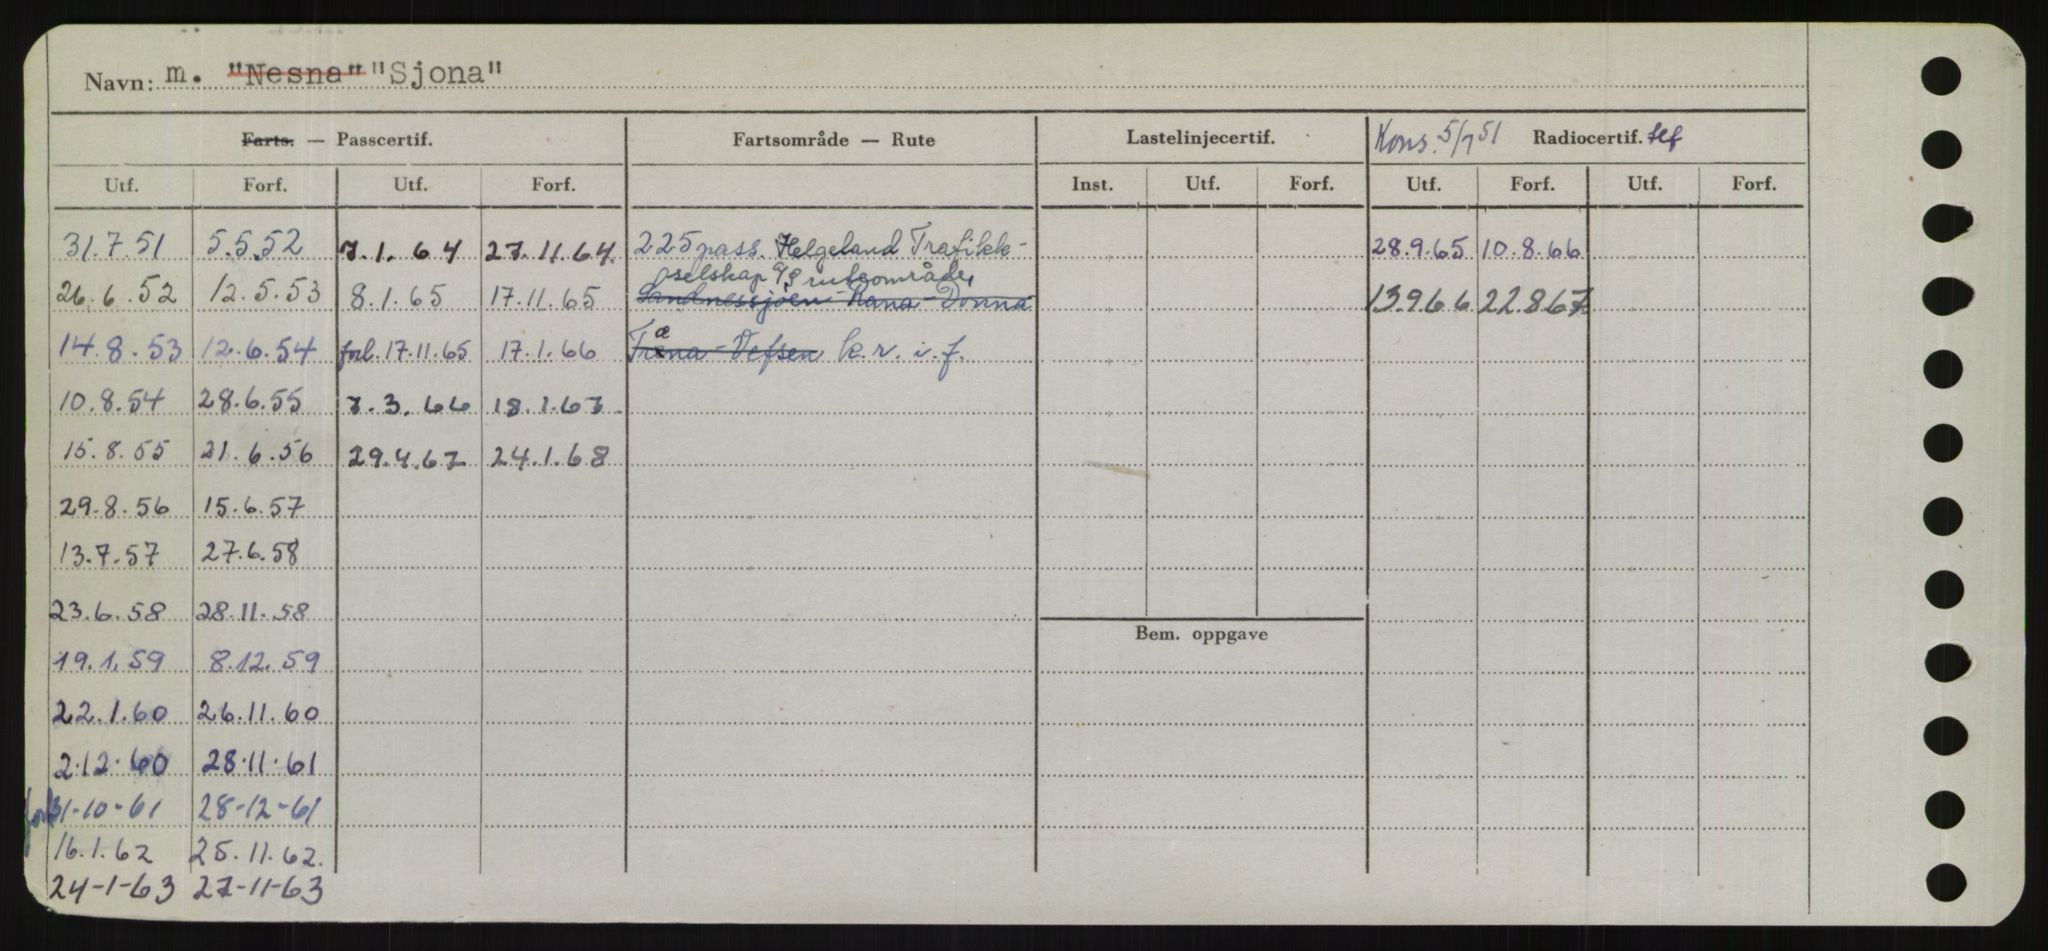 Navn: m. "Nesna" "Sjona"
Farts. — Passcertif. Fartsområde — Rute Lastelinjecertif. Kons. 5/7 51 Radiocertif. tlf
Utf. Forf. Utf. Forf. Inst. Utf. Forf. Utf. Forf. Utf. Forf.
31.7.51 5.5.52 7.1.64 27.11.64. 225 pass. Helgeland Trafikk- 28.9.65 10.8.66
selskap A/S ruteområde,
26.6.52 12.5.53 8.1.65 17.11.65 Sandnessjøen-Rana-Dønna 13.9.66 22.8.67
14.8.53 12.6.54 forl. 17.11.65 17.1.66 Træna-Vefsen k.r.i.f.
10.8.54 28.6.55 7.3.66 18.1.67.
15.8.55 21.6.56 29.4.67 24.1.68
29.8.56 15.6.57
13.7.57 27.6.58
23.6.58 28.11.58
Bem. oppgave
19.1.59 8.12.59
22.1.60 26.11.60
2.12.60 28.11.61
forl. 31-10-61 28-12-61
16.1.62 25.11.62.
24-1-63 27-11-63